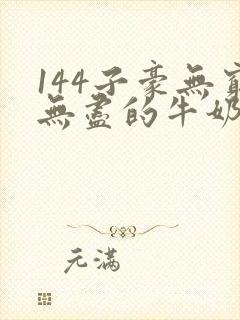 144子豪無窮
無盡的牛奶
元滿